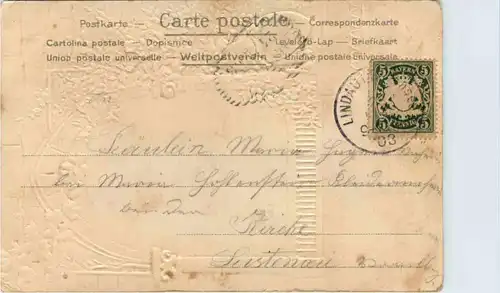 Postkarte — Carte postale — Correspondenzkarte
Cartolina postale — Dopisnice — Levelező-Lap — Briefkaart
Union postale universelle — Weltpostverein — Unione postale universale
LINDAU
03
5 BAYERN 5
5 5
Fräulein Maria
bei Maria
bei der
Kirche
Lustenau